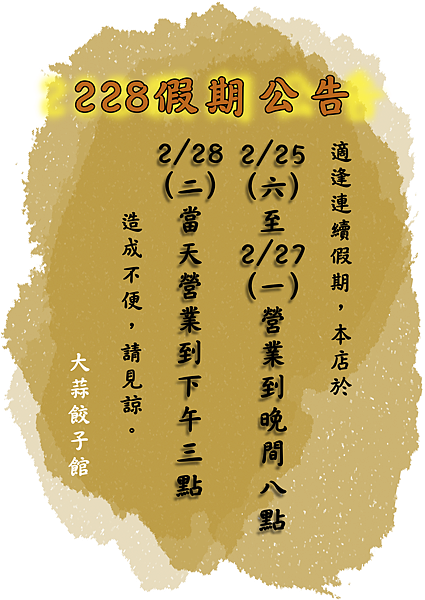 228假期公告
適逢連續假期，本店於
2/25(六)至2/27(一)營業到晚間八點
2/28(二)當天營業到下午三點
造成不便，請見諒。
大蒜餃子館